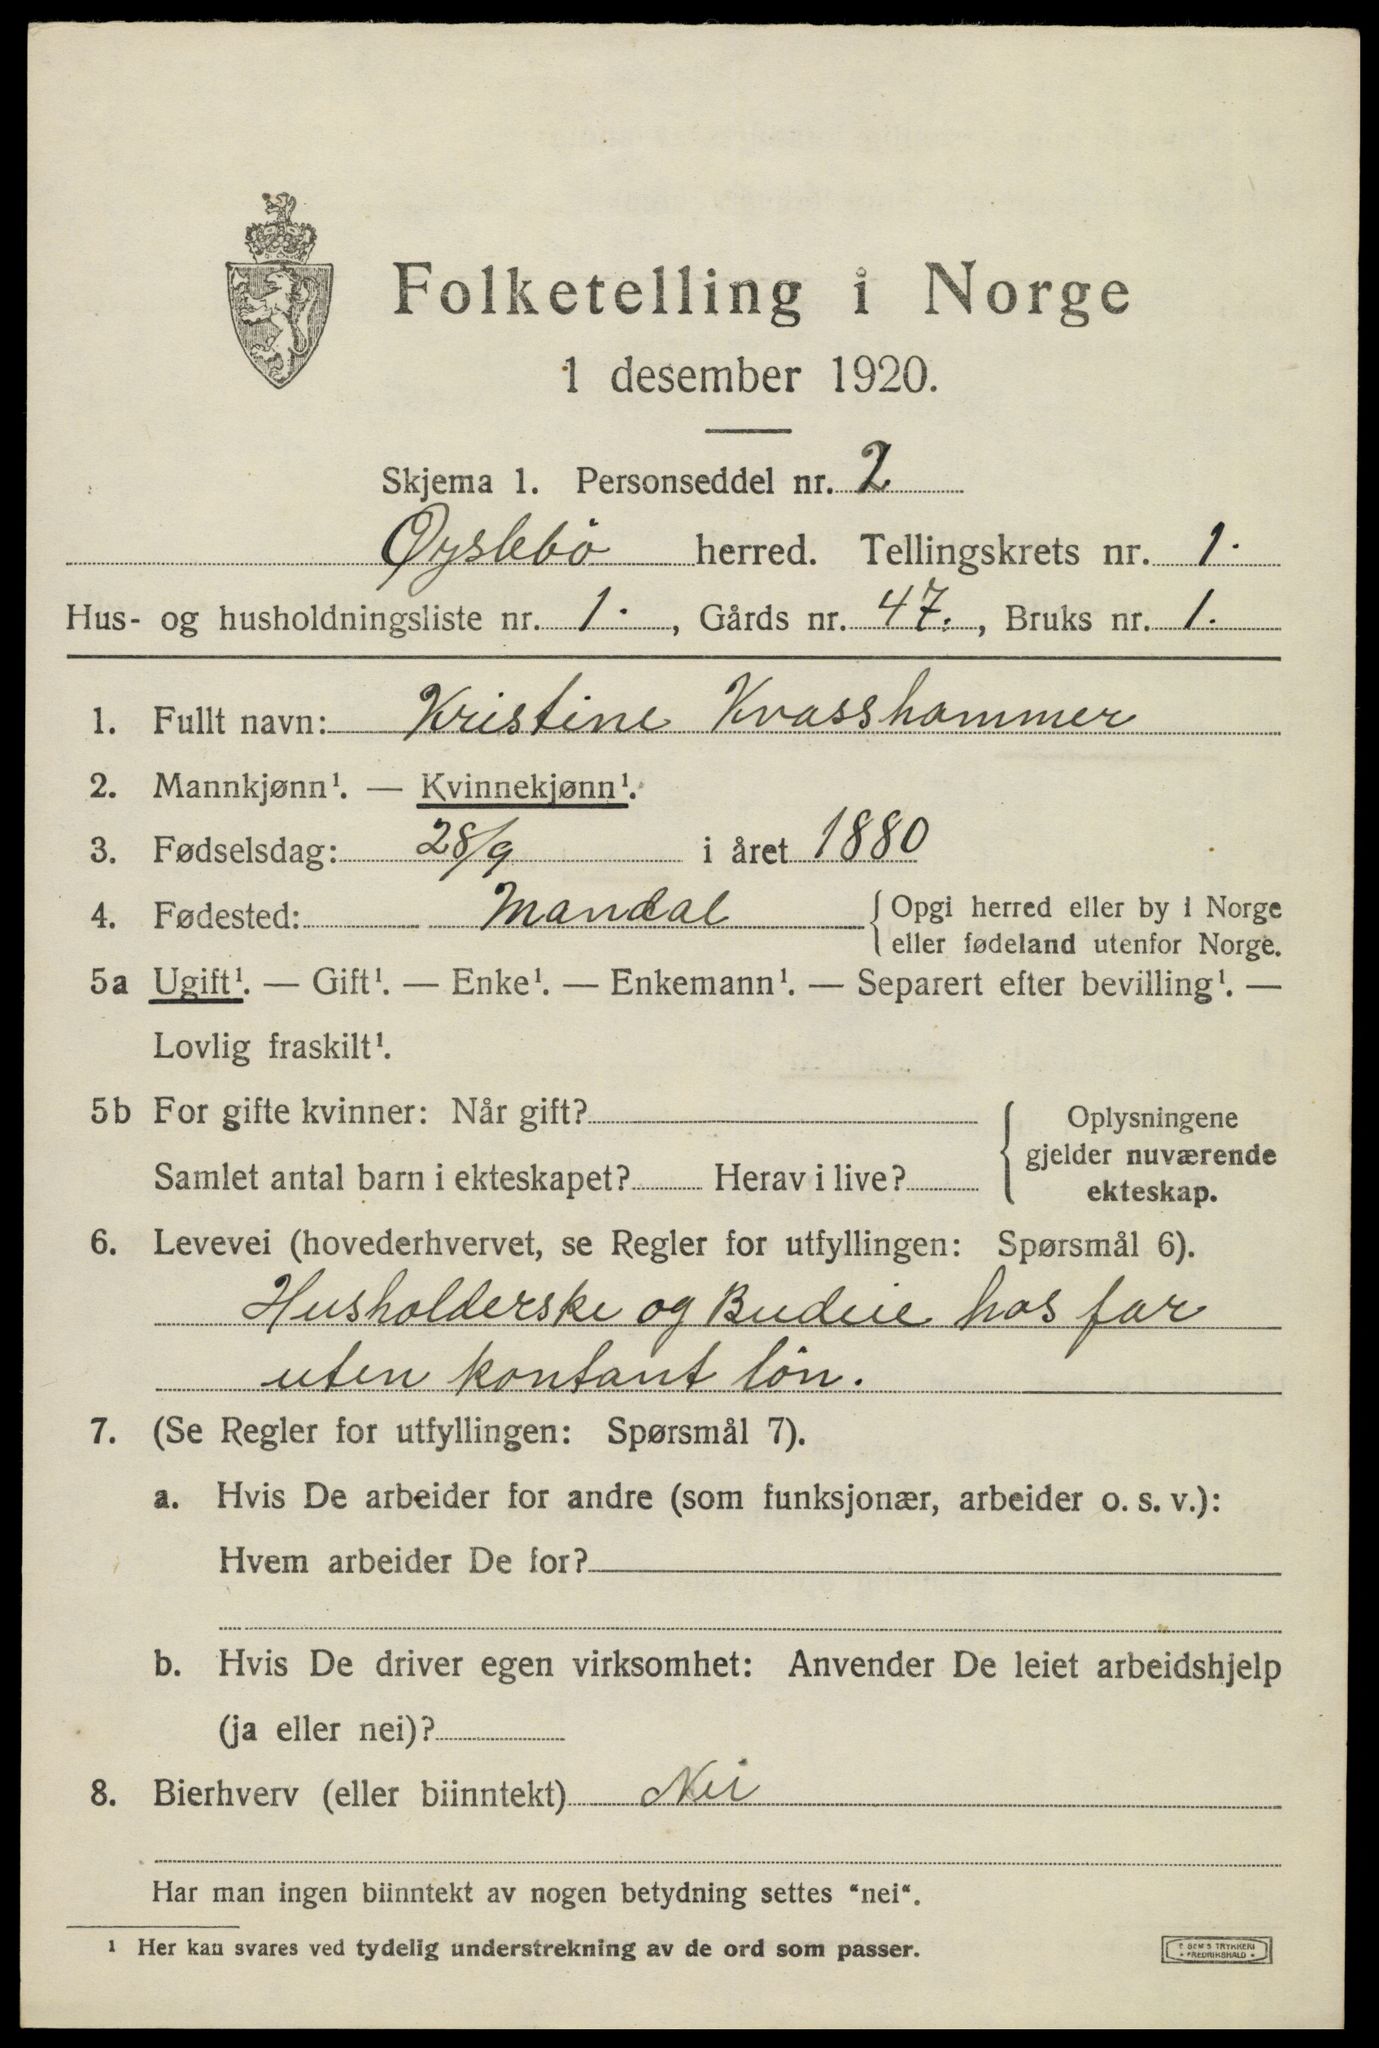 Folketelling i Norge
1 desember 1920.
Skjema 1. Personseddel nr. 2
Øyslebö herred. Tellingskrets nr. 1.
Hus- og husholdningsliste nr. 1., Gårds nr. 47., Bruks nr. 1.
1. Fullt navn: Kristine Kvasshammer
2. Mannkjønn¹. — Kvinnekjønn¹.
3. Fødselsdag: 28/9 i året 1880
4. Fødested: Mandal { Opgi herred eller by i Norge
eller fødeland utenfor Norge.
5a Ugift¹. — Gift¹. — Enke¹. — Enkemann¹. — Separert efter bevilling¹. —
Lovlig fraskilt¹.
5b For gifte kvinner: Når gift?
Samlet antal barn i ekteskapet? Herav i live?
{ Oplysningene
gjelder nuværende
ekteskap.
6. Levevei (hovederhvervet, se Regler for utfyllingen: Spørsmål 6).
Husholderske og Budeie hos far
uten kontant lön.
7. (Se Regler for utfyllingen: Spørsmål 7).
a. Hvis De arbeider for andre (som funksjonær, arbeider o. s. v.):
Hvem arbeider De for?
b. Hvis De driver egen virksomhet: Anvender De leiet arbeidshjelp
(ja eller nei)?
8. Bierhverv (eller biinntekt) Nei
Har man ingen biinntekt av nogen betydning settes "nei".
¹ Her kan svares ved tydelig understrekning av de ord som passer.
E SEM'S TRYKKERI
• FREDRIKSHALD •